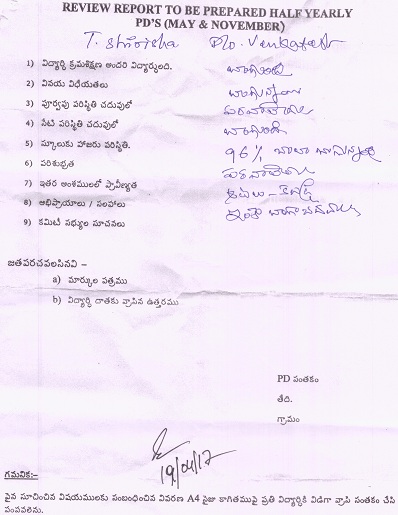 REVIEW REPORT TO BE PREPARED HALF YEARLY
PD'S (MAY & NOVEMBER)
T. Shirisha D/o. Venkatesh
1) విద్యార్థి క్రమశిక్షణ అందరి విద్యార్థులది. బాగుంది
2) వినయ విధేయతలు
3) పూర్వపు పరిస్థితి చదువులో పరవాలేదు
4) నేటి పరిస్థితి చదువులో బాగుంది
5) స్కూలుకు హాజరు పరిస్థితి. 96% చాలా
6) పరిశుభ్రత పరవాలేదు
7) ఇతర అంశములలో ప్రావీణ్యత
8) అభిప్రాయాలు / సలహాలు
9) కమిటీ సభ్యుల సూచనలు ఇంకా బాగా చదవాలి
జతపరచవలసినవి -
a) మార్కుల పత్రము
b) విద్యార్థి దాతకు వ్రాసిన ఉత్తరము
PD సంతకం
తేది.
గ్రామం
19/04/17
గమనిక:-
పైన సూచించిన విషయములకు సంబంధించిన వివరణ A4 సైజు కాగితముపై ప్రతి విద్యార్థికి విడిగా వ్రాసి సంతకం చేసి
పంపవలెను.